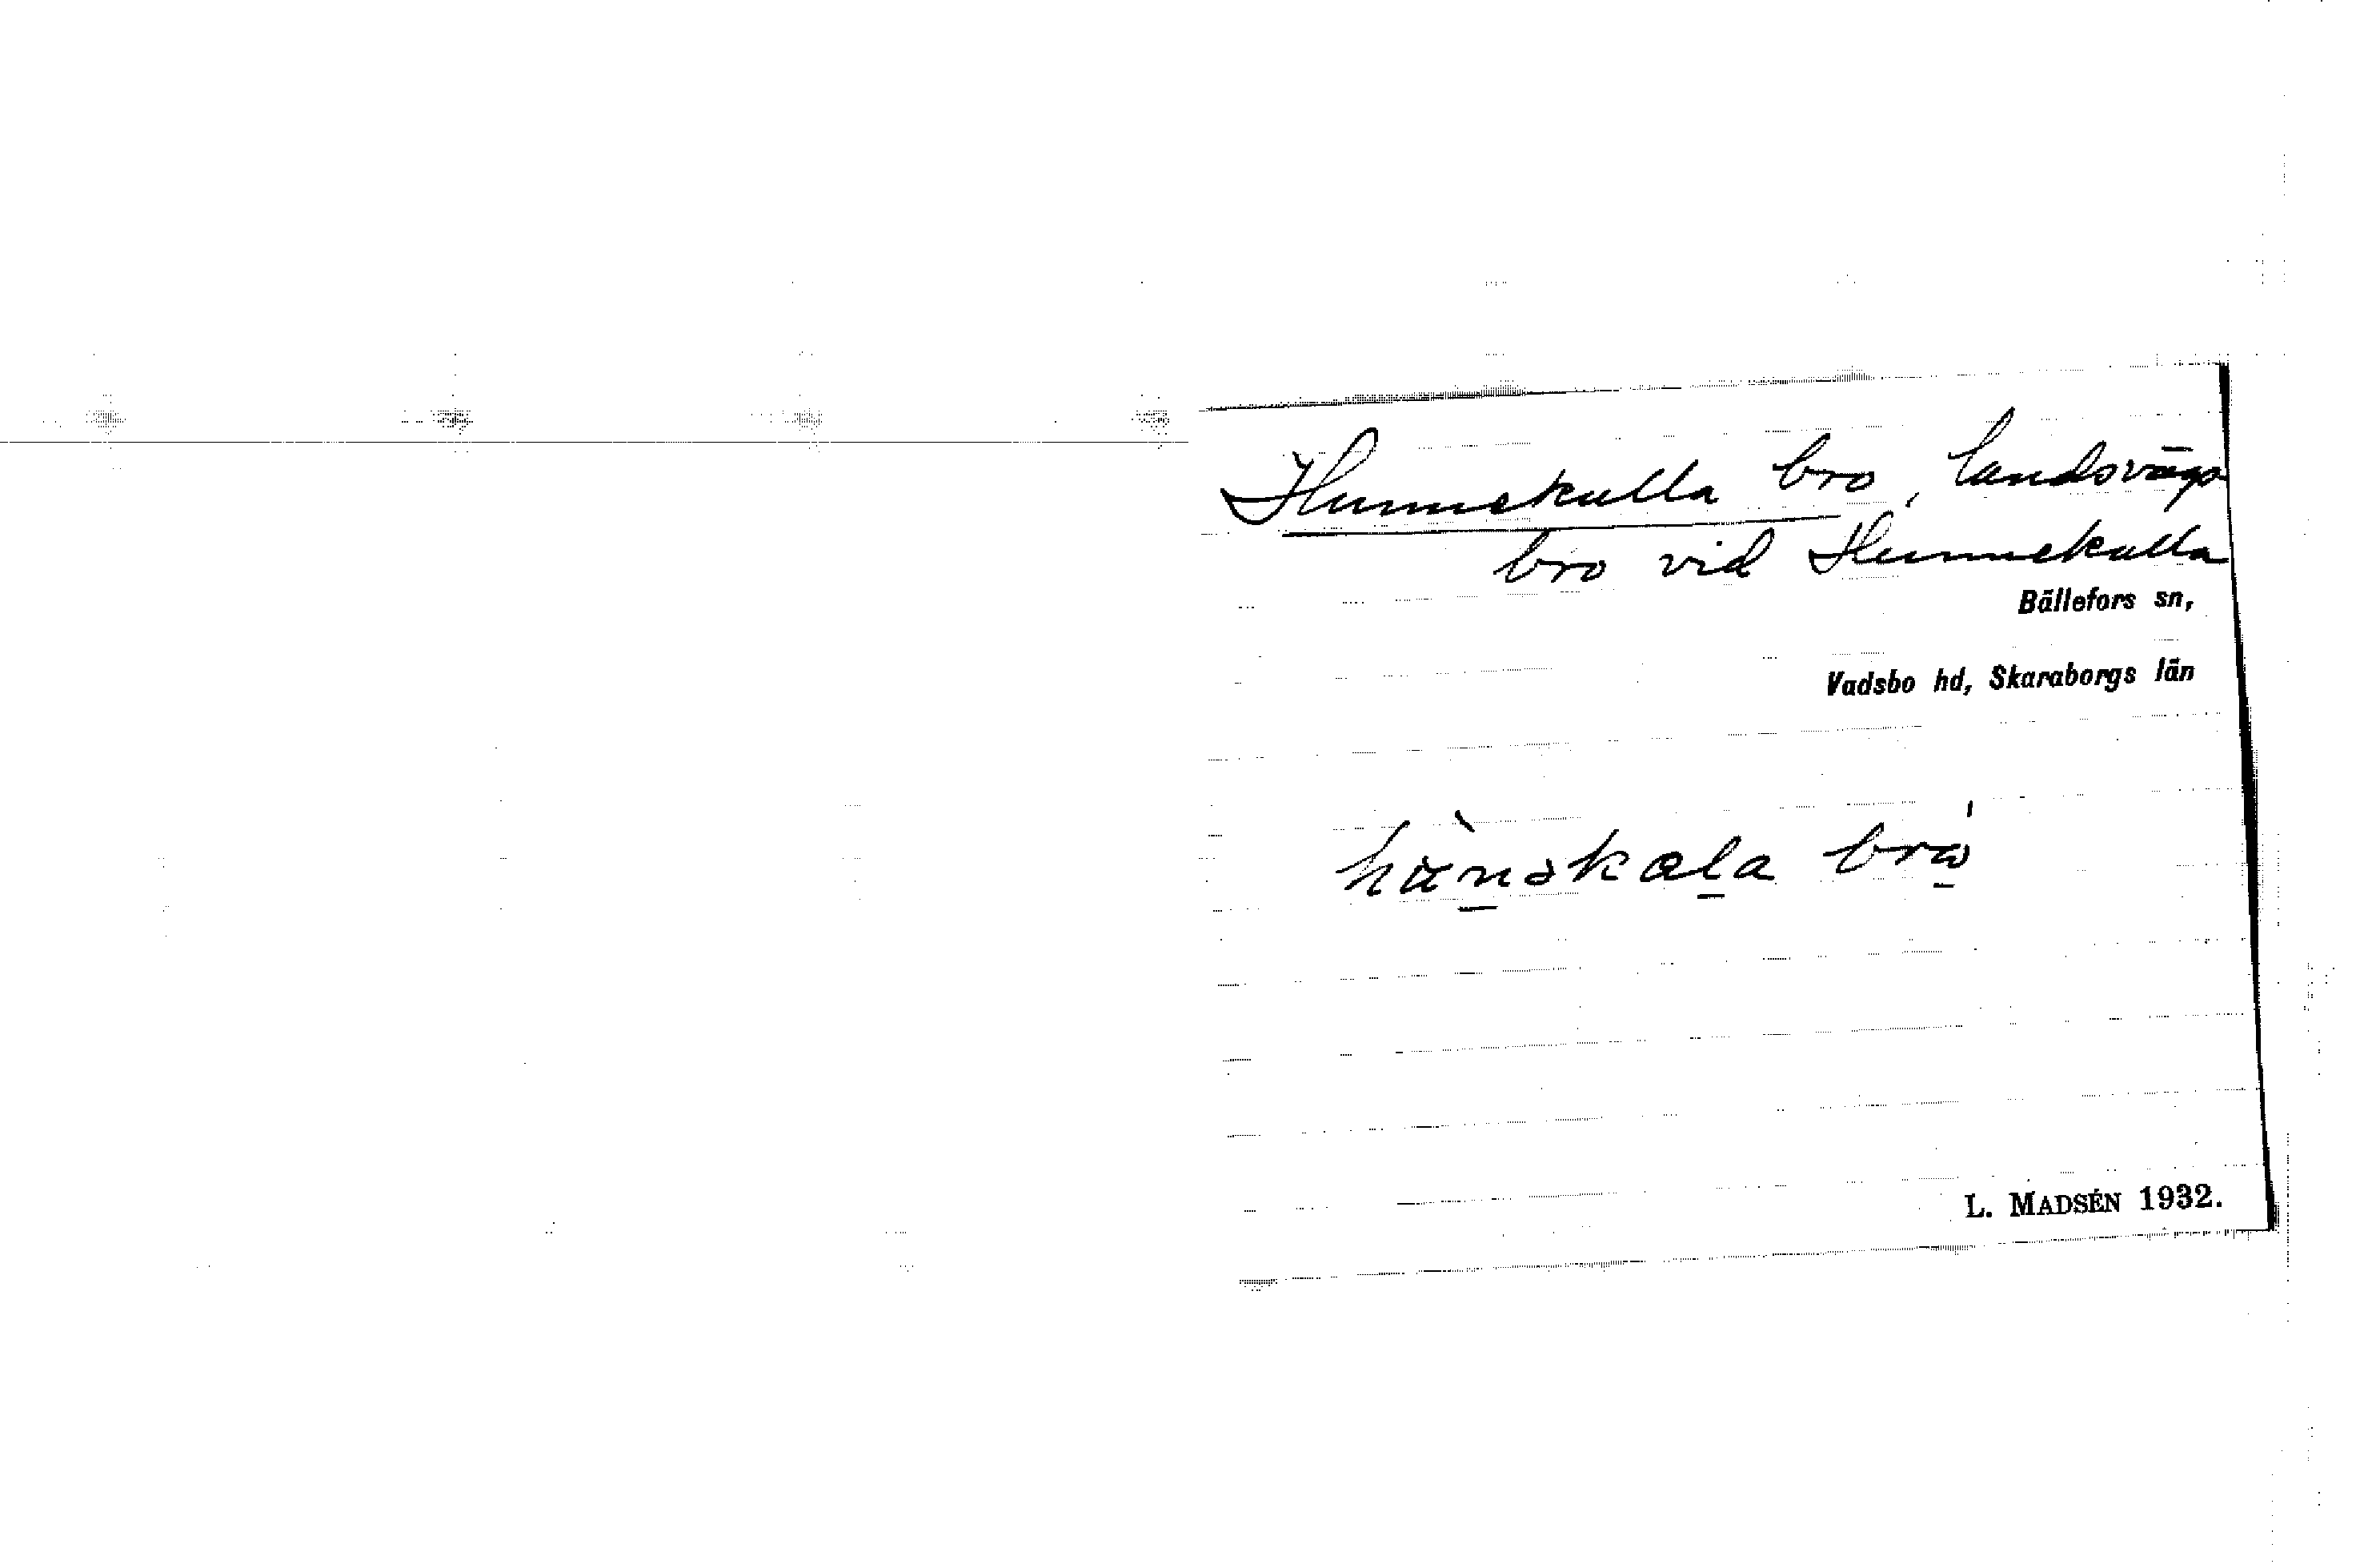 Hunnekulla bro, landsvägs
bro vid Hunnekulla
Bällefors sn,
Vadsbo hd, Skaraborgs län
bro
L. MADSÉN 1932.